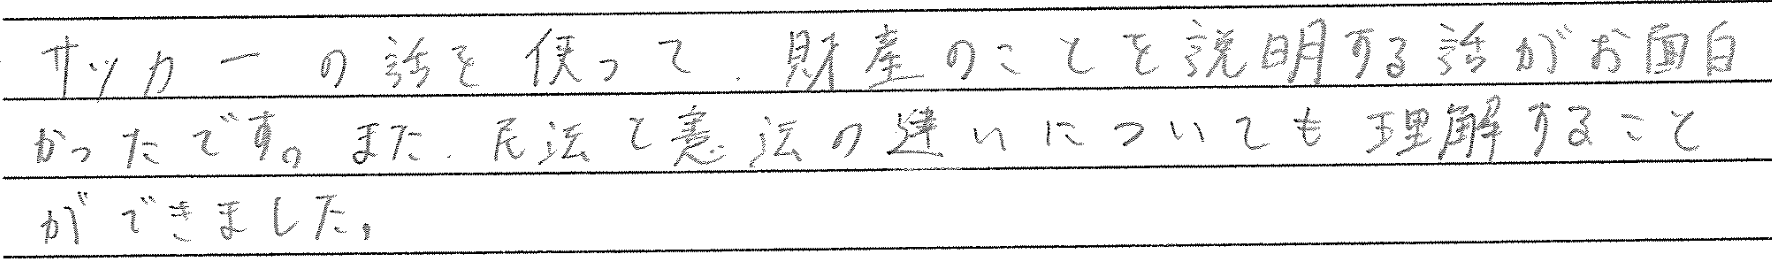 サッカーの話を使って、財産のことを説明する話がお面白
かったです。また、民法と憲法の違いについても理解すること
ができました。